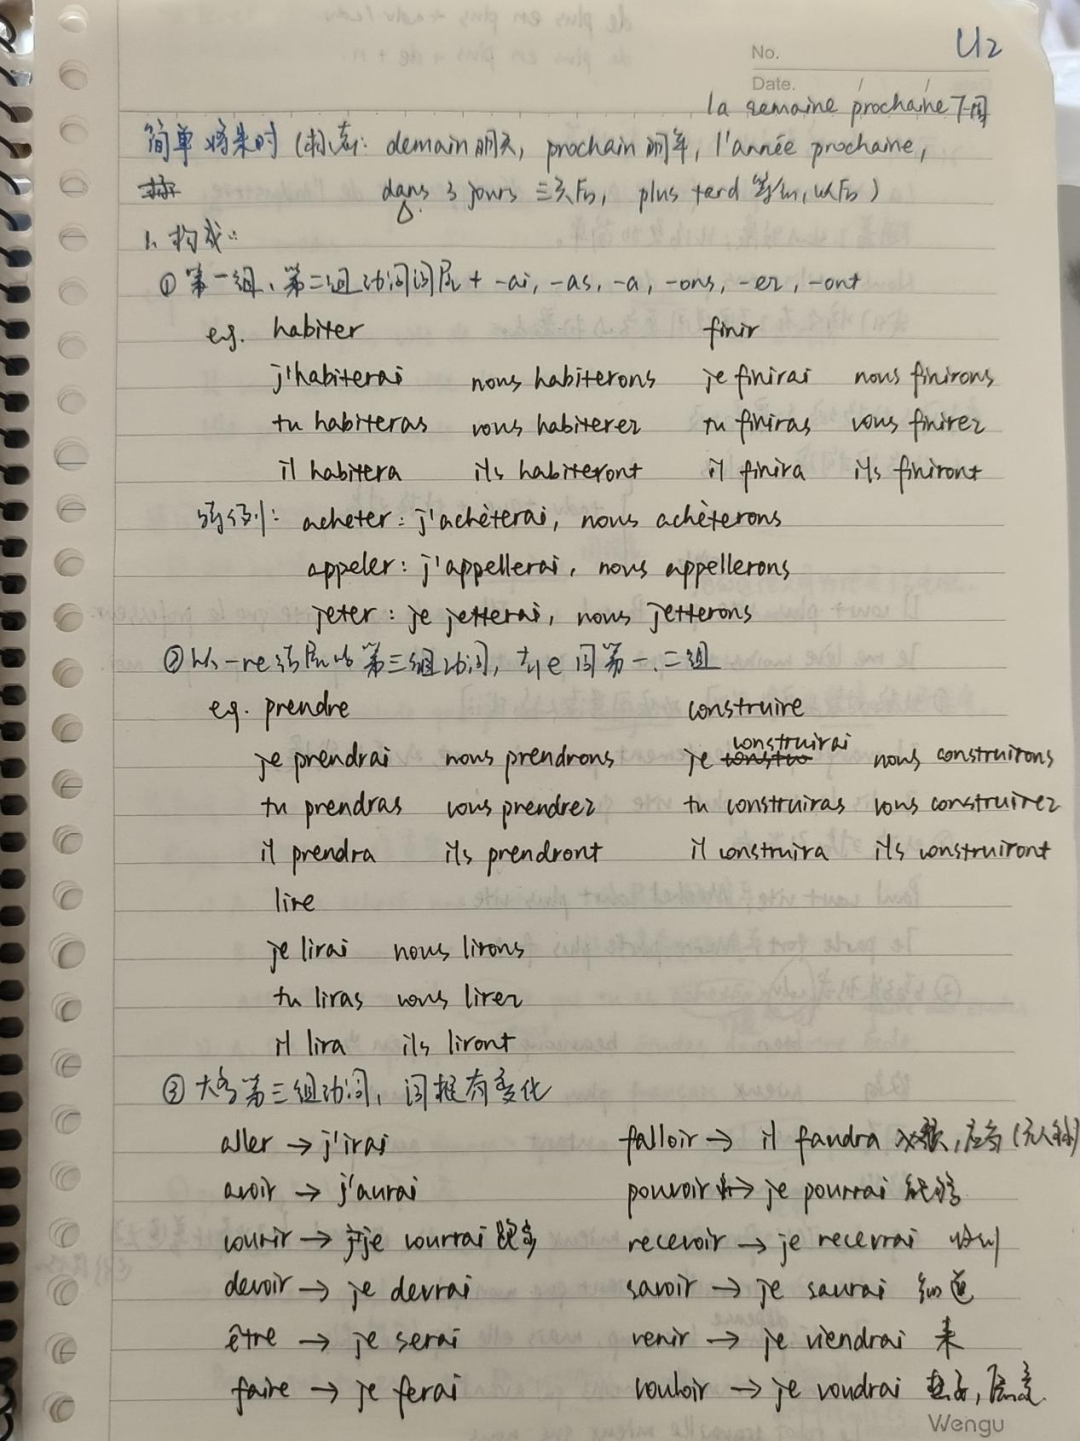 U2
No.
Date.
la semaine prochaine 下周
简单将来时 (标志: demain 明天, prochain 明年, l'année prochaine,
dans 3 jours 三天后, plus tard 等会, 以后)
1. 构成:
① 第一组、第二组动词词尾 + -ai, -as, -a, -ons, -ez, -ont
eg. habiter finir
j'habiterai nous habiterons je finirai nous finirons
tu habiteras vous habiterez tu finiras vous finirez
il habitera ils habiteront il finira ils finiront
特例: acheter : j'achèterai, nous achèterons
appeler : j'appellerai, nous appellerons
jeter : je jetterai, nous jetterons
② 以-re结尾的第三组动词, 去e同第一、二组
eg. prendre construire
je prendrai nous prendrons je construirai nous construirons
tu prendras vous prendrez tu construiras vous construirez
il prendra ils prendront il construira ils construiront
lire
je lirai nous lirons
tu liras vous lirez
il lira ils liront
③ 大多第三组动词, 词根有变化
aller → j'irai falloir → il faudra 必须, 应当 (无人称)
avoir → j'aurai pouvoir → je pourrai 能够
courir → je courrai 跑步 recevoir → je recevrai 收到
devoir → je devrai savoir → je saurai 知道
être → je serai venir → je viendrai 来
faire → je ferai vouloir → je voudrai 想要, 愿意
Wengu